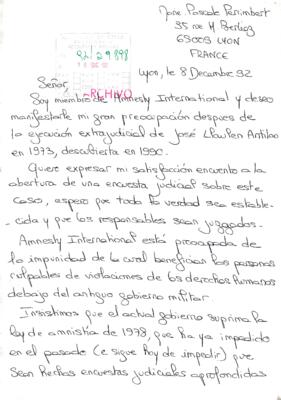 Mme Pascale Parimbert
35 rue M Berliet
69008 LYON
FRANCE
92/29898
ARCHIVO
Lyon, le 8 Decembre 92
Señor,
Soy miembro de Amnesty International y deseo
manifestarle mi gran preocupación despues de
la ejecución extrajudicial de José Llaulen Antilao
en 1973, descubierta en 1990.
Quiero expresar mi satisfacción encuento a la
abertura de una encuesta judicial sobre este
caso, espero que toda la verdad sea estable-
cida y que los responsables sean juzgados.
Amnesty International está preocupada de
la impunidad de la cual benefician las personas
culpables de violaciones de los derechos humanos
debajo del antiguo gobierno militar.
Insistimos que el actual gobierno suprima la
ley de amnistia de 1978, que ha ya impedido
en el pasado (e sigue hoy de impedir) que
sean hechas encuestas judiciales aprofondidas